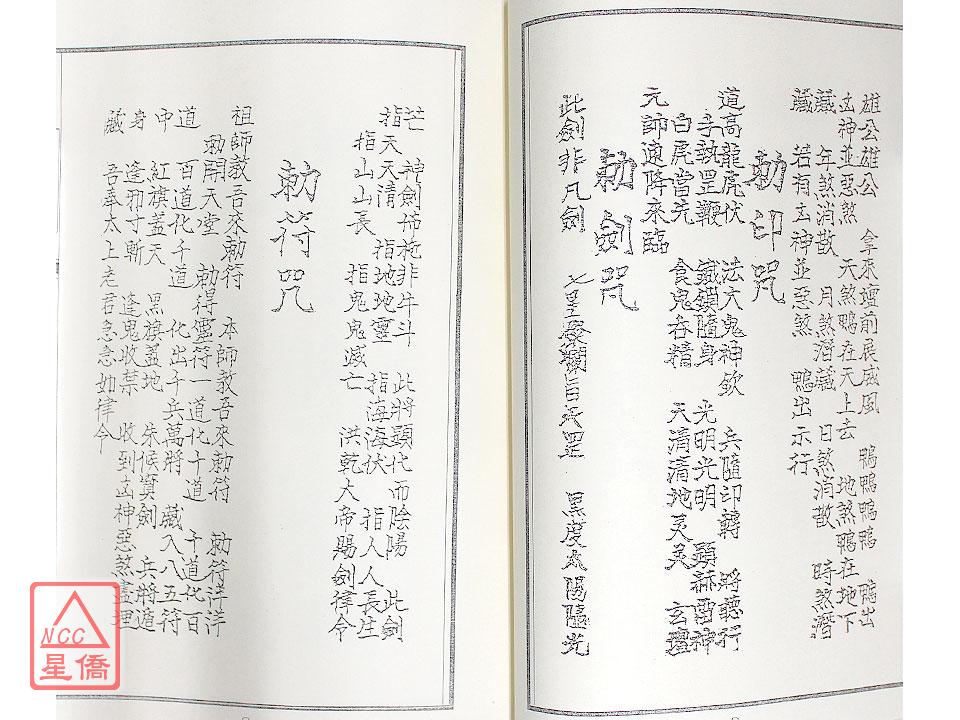 雄公雄公 拿來壇前展威風 鴨鴨鴨鴨 鴨出
凶神並惡煞 天煞鴨在天上去 地煞鴨在地下
年煞消散 月煞潛藏 日煞消散 時煞潛
藏 若有凶神並惡煞 鴨出示行
勅印咒
道高龍虎伏 法大鬼神欽 兵隨印轉 將聽行
手執罡鞭 鐵鎖隨身 光明光明 顕赫酉神
白虎當先 食鬼吞精 天清清地灵灵 玄壇
元帥遠降來臨
勅劍咒
此劍非凡劍 七星 黑度太陽
芒 神劍 非牛斗 此將顕化而陰陽 此劍
指天天清 指地地靈 指海海伏 指人人長生
指山山長 指鬼鬼滅亡 洪乾大帝賜劍律令
勅符咒
祖師教吾來勅符 本師教吾來勅符 勅符洋洋
勅開天堂 勅得靈符一道化十道 十道化百
道 百道化千道 化出千兵萬將 藏入八五符
中 紅旗蓋天 黑旗蓋地 朱候寶劍 兵將遁
身 逢邪寸斬 逢鬼收禁 收到凶神惡煞盡埋
藏 吾奉太上老君急急如律令
NCC
星僑